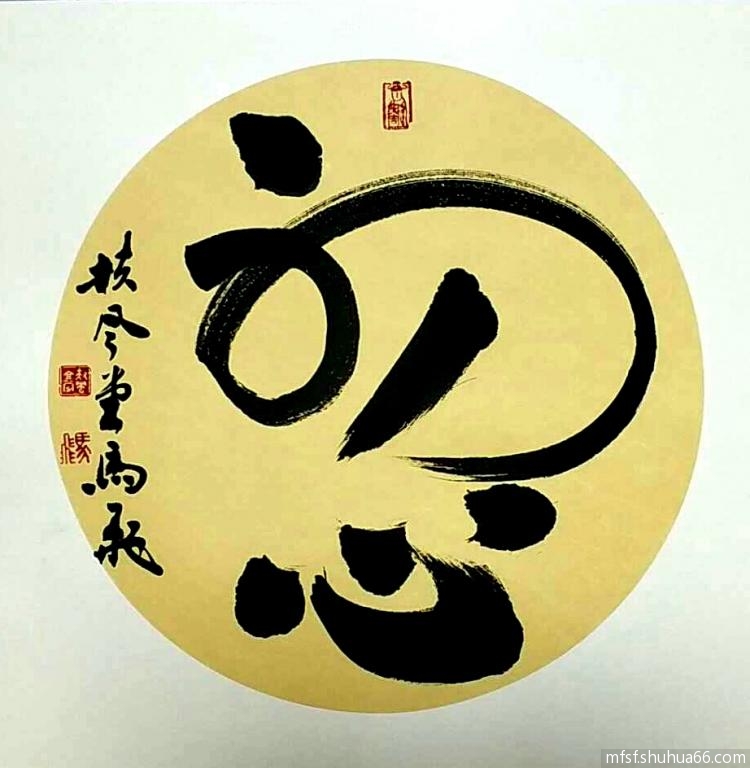 初心
扶风堂馬飛
mfsfshuhua66.com